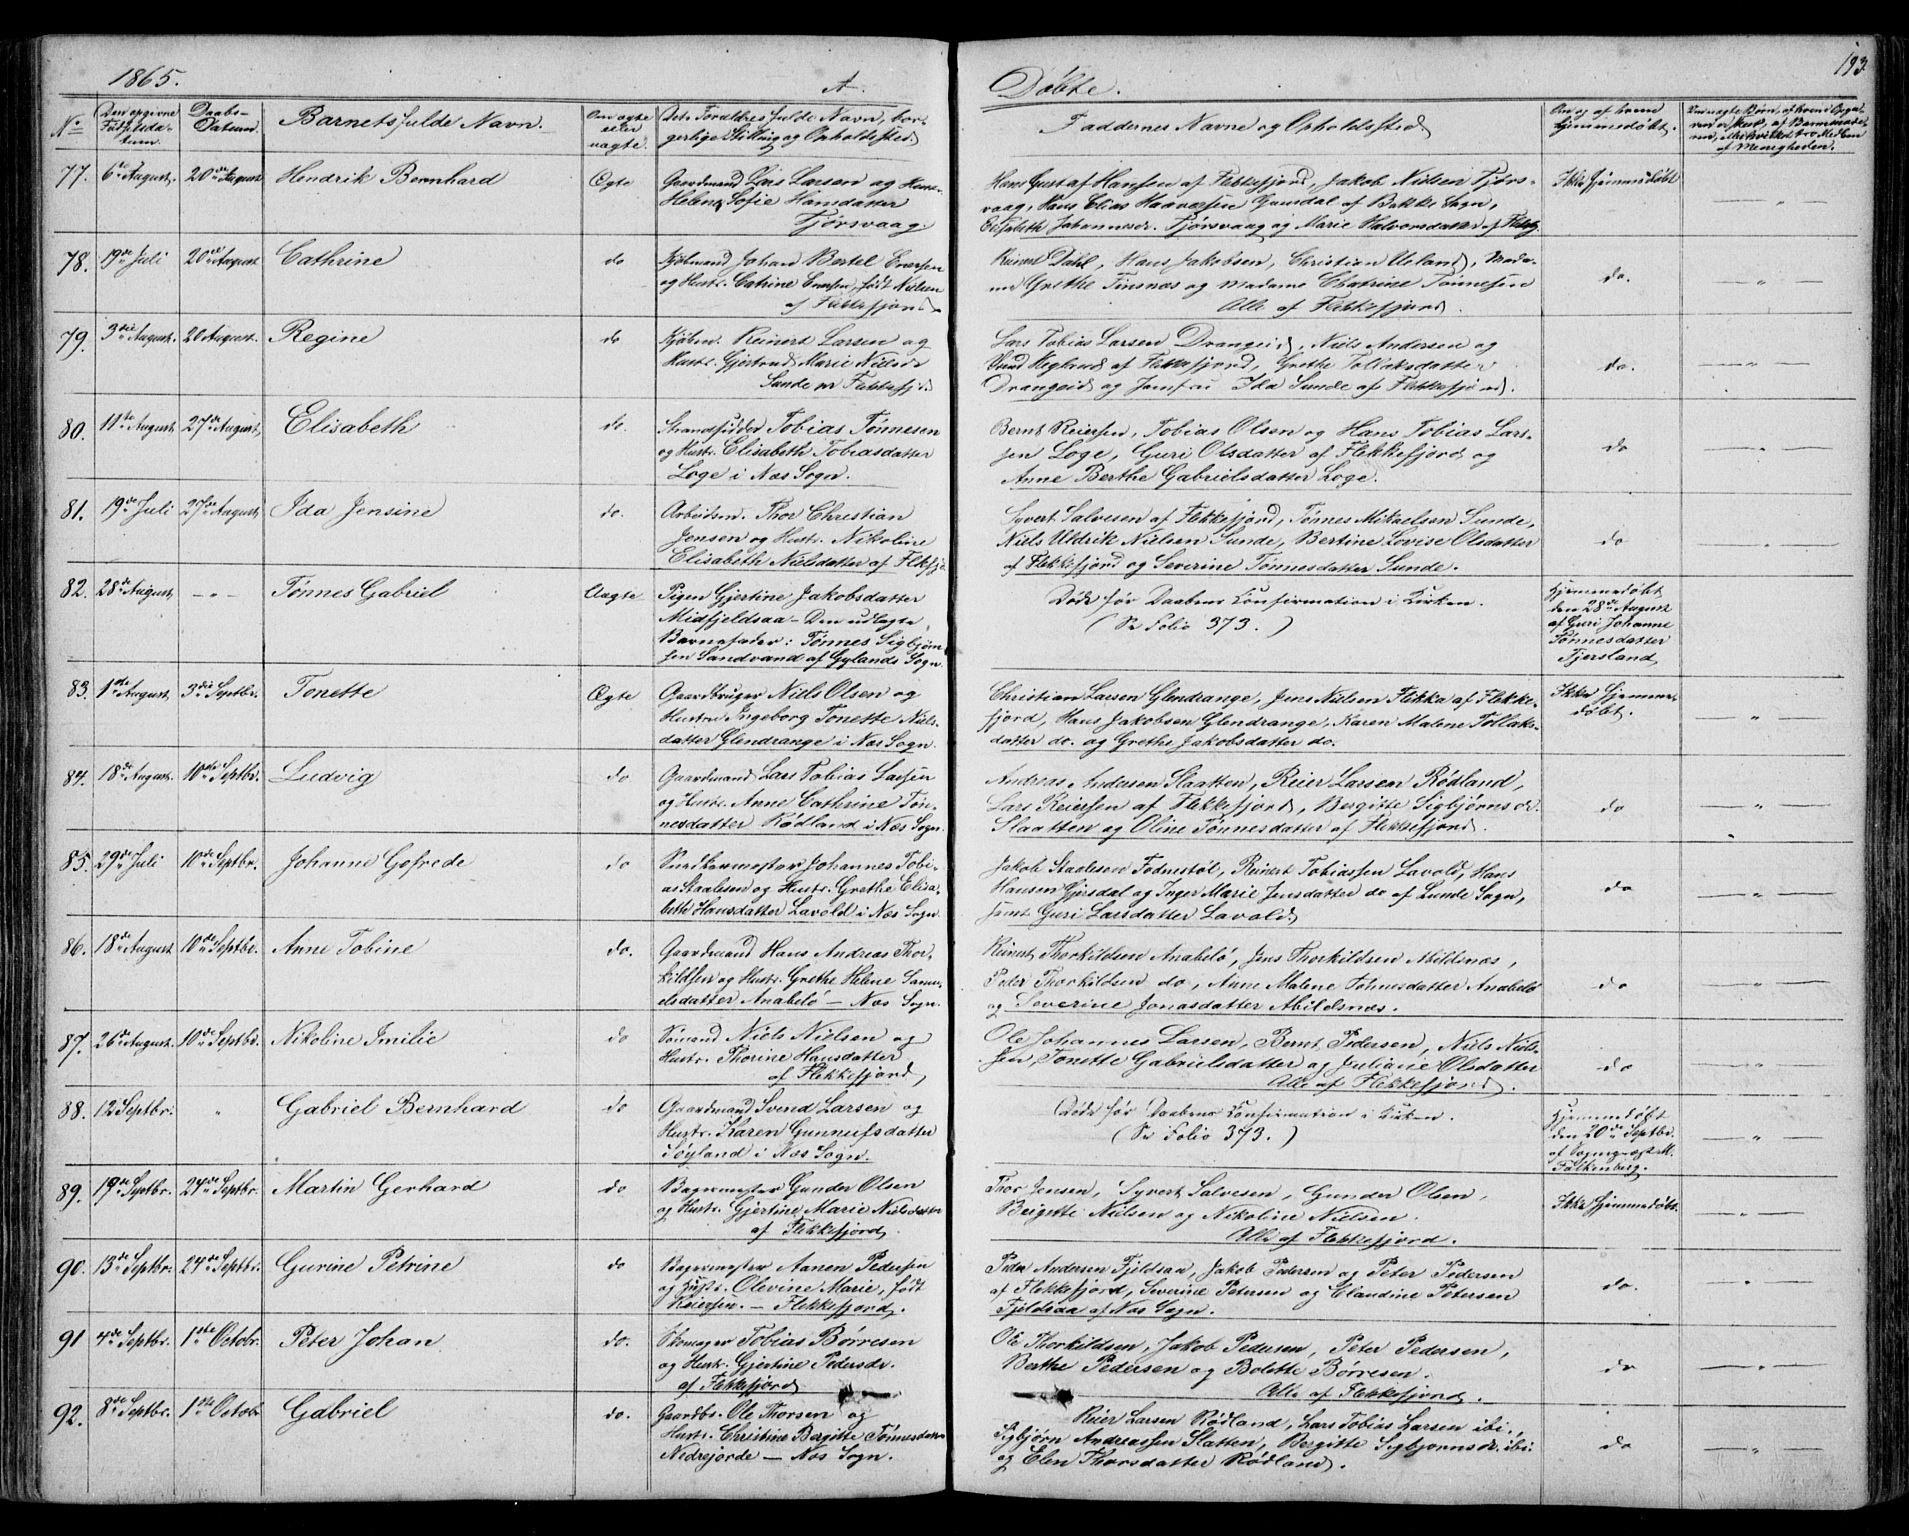 1865.
A.
Døbte.
193
No
Den opgivne Fødselsdatum.
Daabs-Datum.
Barnets fulde Navn.
Om ægte eller uægte.
Det. Forældres fulde Navn, borgerlige Stilling og Opholdssted
Faddernes Navne og Opholdssted
Om og af hvem hjemmedøbt.
77. 6te August. 20de August Hendrik Bernhard Ægte
Gaardmand Lars Larsen og Hustr.
Helene Sofie Hansdatter
Fjørsvaag.
Hans Gustaf Hanssen af Flekkefjord, Jakob Nielsen Fjørs-
vaag, Hans Elias Haaversen Gunsdal af Bakke Sogn,
Elisabeth Johannesdr. Fjørsvaag og Marie Halvorsdatter af Flekkefj
Ikke hjemmedøbt
— " —
78. 19de Juli 20de August Cathrine do
Kjøbmand Johan Bertel Eversen
og Hustr. Catrine Eversen, født Nielsen
af Flekkefjord.
Reinert Dahl, Hans Jakobsen, Christian Ueland, Mada-
me Grethe Tinsnæs og Madame Chatrine Tønnesen
Alle af Flekkefjord.
do.
— " —
79. 3die August. 20 August. Regine do
Kjøbm. Reinert Larsen og
Hustr. Gjertrud Marie Nielsdr
Sunde ved Flekkefjd.
Lars Tobias Larsen Drangeid, Niels Andersen og
Knud Heglund af Flekkefjord, Grethe Tollaksdatter
Drangeid og Jomfru Ida Sunde af Flekkefjord.
do.
— " —
80. 11te August. 27de August, Elisabeth do.
Strandsidder Tobias Tønnesen
og Hustr. Elisabeth Tobiasdatter
Loge i Næs Sogn.
Bernt Reiersen, Tobias Olsen og Hans Tobias Lars-
sen Loge, Guri Olsdatter af Flekkefjord og
Anne Berthe Gabrielsdatter Loge.
do
— " —
81. 19de Juli 27de August, Ida Jensine do.
Arbeidsm. Thor Christian
Jensen og Hustr. Nikoline
Elisabeth Nielsdatter af Flkfjd
Syvert Salvesen af Flekkefjord, Tønnes Mikaelsen Sunde,
Niels Uldrik Nielsen Sunde, Bertine Lovise Olsdatter
af Flekkefjord og Severine Tønnesdatter Sunde.
do
— " —
82. 28de August — " — Tønnes Gabriel Uægte
Pigen Gjertine Jakobsdatter
Midfjeldsaa — Den udlagte
Barnefader: Tønnes Sigbjørn-
sen Sandvand af Gylands Sogn
Døde før Daabens Confirmation i Kirken.
(Se Folio 373.)
Hjemmedøbt
den 28de August
af Guri Johanne
Tønnesdatter
Fjersland
— " —
83. 1ste August. 3die Septbr. Tonette Ægte
Gaardbruger Niels Olsen og
Hustru Ingeborg Tonette Niels-
datter Glendrange i Næs Sogn.
Christian Larsen Glendrange, Jens Nielsen Flikka af Flekke-
fjord, Hans Jakobsen Glendrange, Karen Malene Tollaks-
datter do. og Grethe Jakobsdatter do.
Ikke hjemme-
døbt.
"
84. 18de August. 10de Septbr. Ludvig do
Gaardmand Lars Tobias Larsen
og Hustr. Anne Cathrine Tøn-
nesdatter Rødland i Næs Sogn.
Andreas Andersen Slaatten, Reier Larsen Rødland,
Lars Reiersen af Flekkefjord, Bergitte Sigbjørnsdr.
Slaatten og Oline Tønnesdatter af Flekkefjord.
do
— " —
85. 29de Juli 10de Septbr. Johanne Gofrede do
Snedkermester Johannes Tobi-
as Staalesen og Hustr. Grethe Elisa-
beth Hansdatter Lavold i Næs Sogn.
Jakob Staalesen Fodnestøl, Reinert Tobiassen Lavold, Hans
Hansen Gjersdal og Inger Marie Jensdatter do af Lunde Sogn,
samt Guri Larsdatter Lavold,
do
— " —
86. 18de August 10de Septbr. Anne Tobine do.
Gaardmand Hans Andreas Thor-
kildsen og Hustr. Grethe Helene Samu-
elsdatter Anabelø — Næs Sogn.
Reinert Thorkildsen Anabelø, Jens Thorkildsen Abildsnæs,
Peter Thorkildsen do, Anne Malene Tønnesdatter Anabelø
og Severine Jonasdatter Abildsnæs.
do
— " —
87. 26de August. 10de Septbr. Nikoline Imilie do
Sømand Niels Nielsen og
Hustr. Thorine Hansdatter
af Flekkefjord,
Ole Johannes Larsen, Bernt Pedersen, Niels Niels-
sen, Tonette Gabrielsdatter og Juliane Olsdatter
Alle af Flekkefjord.
do
— " —
88. 12 Septbr. " Gabriel Bernhard do
Gaardmand Svend Larsen og
Hustr. Karen Gunnufsdatter
Søyland i Næs Sogn.
Døde før Daabens Confirmation i Kirken.
(Se Folio 373.)
Hjemmedøbt
den 20de Septbr.
af Sognepræst M.
Falkenberg.
— " —
89. 19de Septbr. 24de Septbr. Martin Gerhard do
Bagermester Gunder Olsen
og Hustr. Gjertine Marie Nielsdatter
af Flekkefjord.
Thor Jensen, Syvert Salvesen, Gunder Olsen,
Beigitte Nielsen og Nikoline Nielsen.
Alle af Flekkefjord.
Ikke hjemmedøbt.
— " —
90. 13de Septbr. 24de Septbr. Gurine Petrine do
Bagermester Aanen Pedersen
og Hustr. Olevine Marie, født
Reiersen. — Flekkefjord.
Peder Andersen Fjeldsaa, Jakob Pedersen og Peter Pedersen
af Flekkefjord, Severine Petersen og Claudine Petersen
Fjeldsaa af Næs Sogn.
do.
— " —
91 4de Septbr. 1ste Octobr. Peter Johan do.
Skomager Tobias Børresen
og Hustr. Gjertine Pedersdr.
af Flekkefjord
Ole Thorkildsen, Jakob Pedersen, Peter Pedersen,
Berthe Pedersen og Bolette Børresen.
Alle af Flekkefjord.
do
— " —
92. 8de Septbr. 1ste Octobr Gabriel do.
Gaardbr. Ole Thorsen og
Hustr. Christine Bergitte Tønnesdatter
Nedrejorde — Næs Sogn.
Reier Larsen Rødland, Lars Tobias Larsen ibi.,
Sigbjørn Andreassen Slatten, Bergitte Sigbjørnsdr. ibi
og Elen Thorsdatter Rødland.
do
— " —